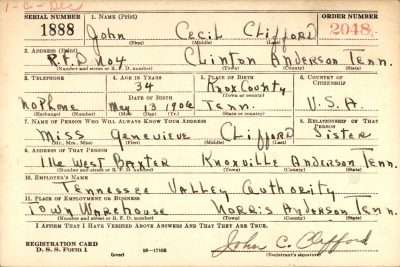 1-C-Dec
SERIAL NUMBER 1. NAME (Print) ORDER NUMBER
1888 John Cecil Clifford 2048
(First) (Middle) (Last)
2. ADDRESS (Print)
R.F.D No4 Clinton Anderson Tenn.
(Number and street or R. F. D. number) (Town) (County) (State)
3. TELEPHONE 4. AGE IN YEARS 5. PLACE OF BIRTH 6. COUNTRY OF CITIZENSHIP
34 Knox County
DATE OF BIRTH (Town or county)
No Phone May 13 1906 Tenn. U.S.A.
(Exchange) (Number) (Mo.) (Day) (Yr.) (State or country)
7. NAME OF PERSON WHO WILL ALWAYS KNOW YOUR ADDRESS 8. RELATIONSHIP OF THAT PERSON
Miss Genevieve Clifford Sister
(Mr., Mrs., Miss) (First) (Middle) (Last)
9. ADDRESS OF THAT PERSON
116 West Baxter Knoxville Anderson Tenn.
(Number and street or R. F. D. number) (Town) (County) (State)
10. EMPLOYER'S NAME
Tennessee Valley Authority
11. PLACE OF EMPLOYMENT OR BUSINESS
Town Warehouse Norris Anderson Tenn.
(Number and street or R. F. D. number) (Town) (County) (State)
I AFFIRM THAT I HAVE VERIFIED ABOVE ANSWERS AND THAT THEY ARE TRUE.
REGISTRATION CARD
D. S. S. Form 1 (over) 16—17105 John C. Clifford
(Registrant's signature)